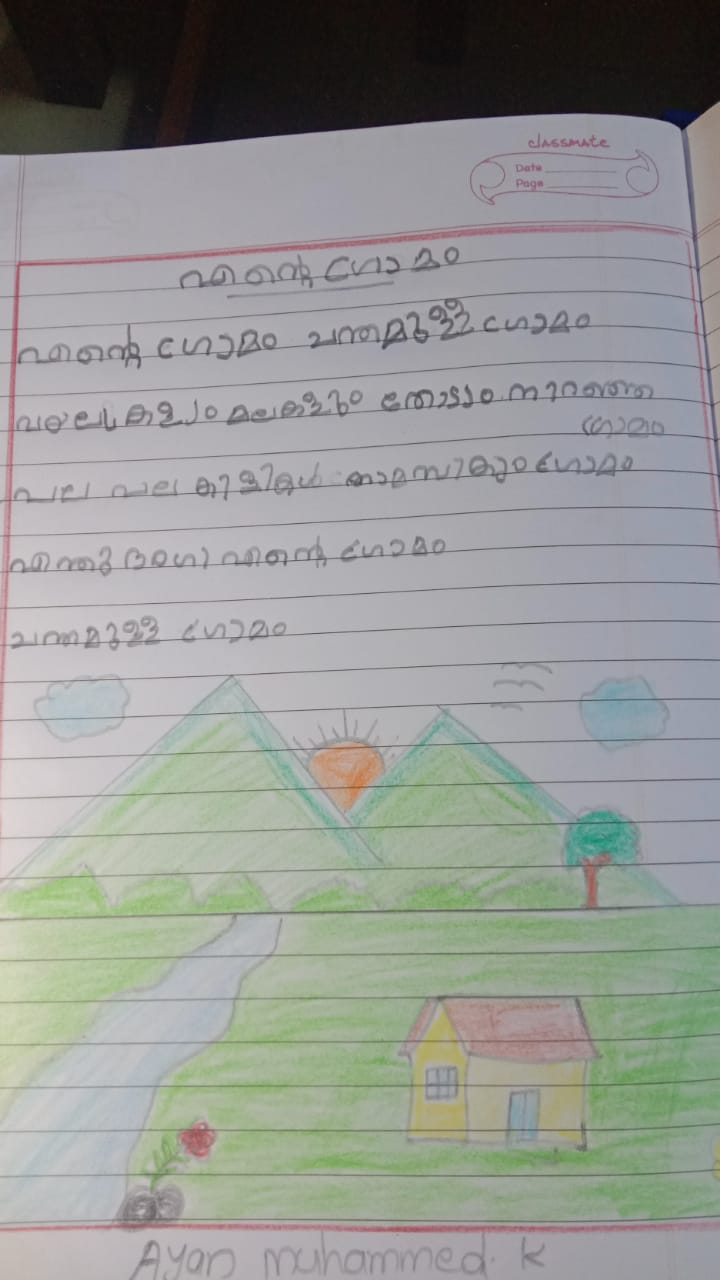 classmate
Date
Page
എന്റെ ഗ്രാമം
എന്റെ ഗ്രാമം ചന്തമുള്ള ഗ്രാമം
വയലുകളും മലകളും തോടും നിറഞ്ഞ
ഗ്രാമം
പല പല കിളികൾ താമസിക്കും ഗ്രാമം
എന്തു ഭംഗി എന്റെ ഗ്രാമം
ചന്തമുള്ള ഗ്രാമം
Ayan muhammed. K